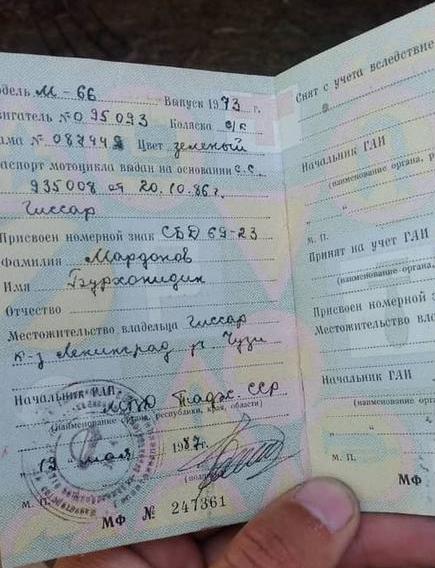 одель М-66 Выпуск 1973 г.
вигатель № 095093 Коляска б/к
ама № 087449 Цвет зеленый
аспорт мотоцикла выдан на основании с.с.
935008 от 20.10.86 г.
Гиссар
Присвоен номерной знак СБД 69-23
Фамилия Мардонов
Имя Бурхонидин
Отчество
Местожительство владельца Гиссар
к-з Ленинград
Начальник ГАИ
Тадж. ССР
(наименование органа, республики, края, области)
19 мая 1987г.
М. П.
МФ № 247361
Снят с учета вследствие
Начальник ГАИ
(наименование органа, р
М. П.
Принят на учет ГАИ
(наименование органа,
Присвоен номерной з
Местожительство влад
Начальник ГАИ
(наименование орган
М. П.
МФ